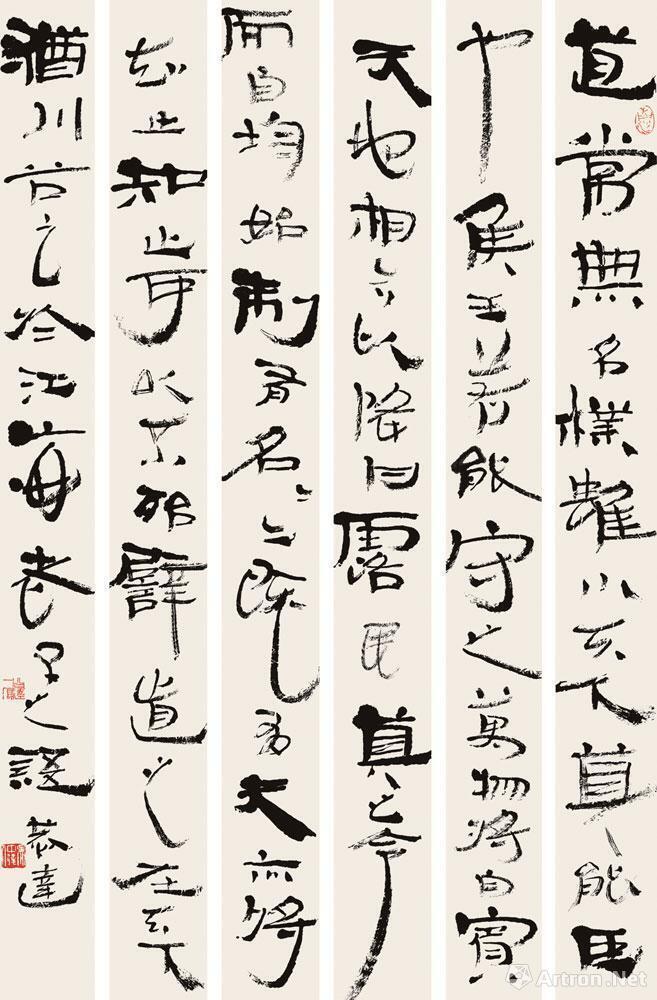 道常無名樸雖小天下莫能臣
也侯王若能守之萬物將自賓
天地相合以降甘露民莫之令
而自均始制有名名亦既有夫亦將
知止知止可以不殆譬道之在天下
猶川谷之於江海老子之語恭達
Artron.Net